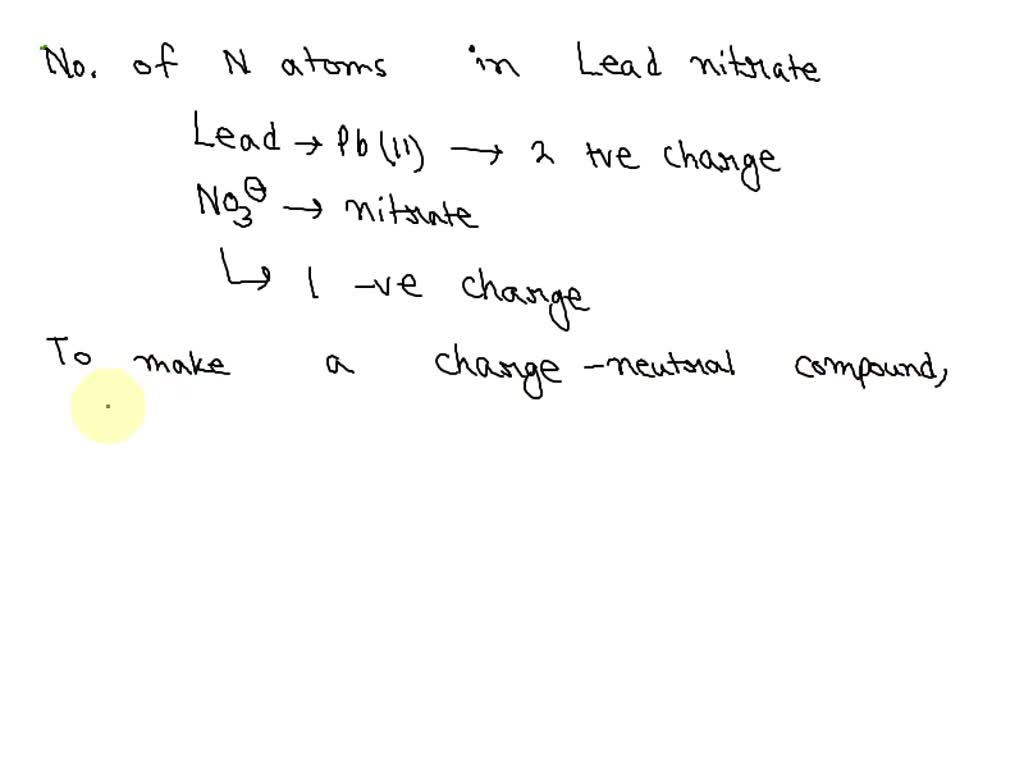 No. of N atoms in Lead nitrate
Lead → Pb(II) → 2 +ve charge
NO₃⊖ → nitrate
↳ 1 -ve charge
To make a charge-neutral compound,